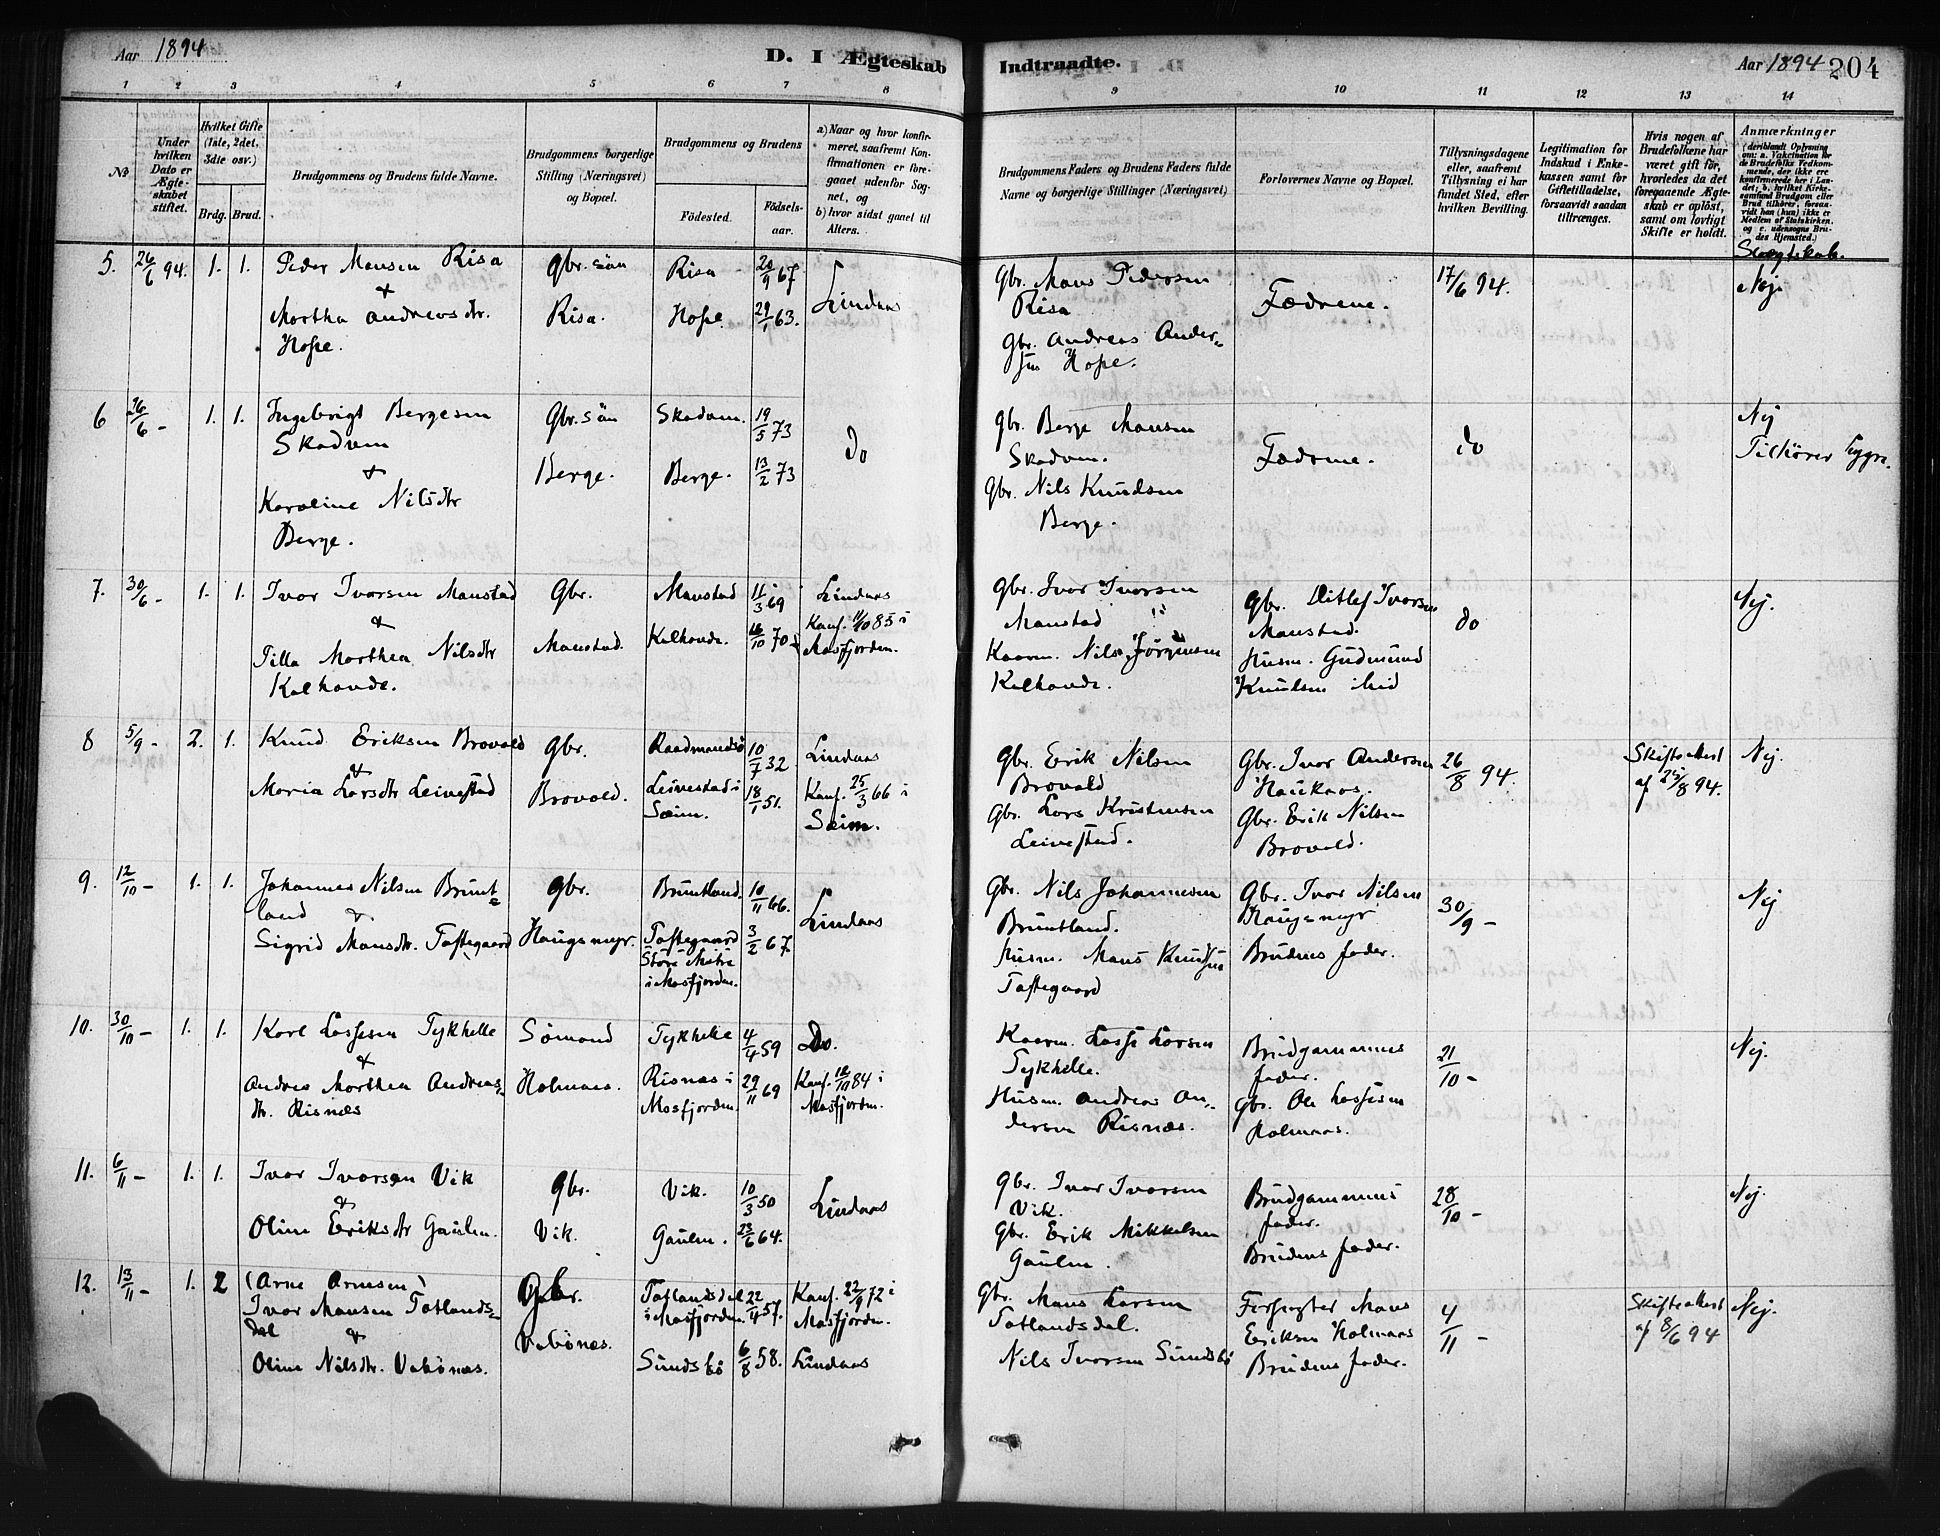 Aar 1894
D. I Ægteskab
Indtraadte.
Aar 1894 204
1 2 3 4 5 6 7 8 9 10 11 12 13 14
No
Under hvilken Dato er Ægteskabet stiftet.
Hvilket Gifte (1ste, 2det, 3die osv.)
Brdg. Brud.
Brudgommens og Brudens fulde Navne.
Brudgommens borgerlige Stilling (Næringsvei) og Bopæl.
Brudgommens og Brudens
Födested. Födselsaar.
a) Naar og hvor konfirmeret, saafremt Konfirmationen er foregaaet udenfor Sognet, og
b) hvor sidst gaaet til Alters.
Brudgommens Faders og Brudens Faders fulde Navne og borgerlige Stillinger (Næringsvei)
Forlovernes Navne og Bopæl.
Tillysningsdagene eller, saafremt Tillysning ei har fundet Sted, efter hvilken Bevilling.
Legitimation for Indskud i Enkekassen samt for Giftetilladelse, forsaavidt saadan tiltrænges.
Hvis nogen af Brudefolkene har været gift för, hvorledes da det foregaaende Ægteskab er oplöst, samt om lovligt Skifte er holdt.
Anmærkninger
(deriblandt Oplysning om: a. Vaccination for de Brudefolks Vedkommende, der ikke ere konfirmerede her i Landet; b. hvilket Kirkesamfund Brudgom eller Brud tilhörer, forsaavidt han (hun) ikke er Medlem af Statskirken, og c. udensogns Brudes Hjemsted.)
Slægtskab.
5. 26/6 94. 1. 1. Peder Monsen Risa
&
Martha Andreasdtr.
Hope.
Gbr. sön
Risa.
Risa 20/9 67
Hope. 29/1 63.
Lindaas
Gbr. Mons Pedersen
Risa
Gbr. Andreas Ander=
sen Hope.
Fædrene.
17/6 94.
Nej
6 26/6 - 1. 1. Ingebrigt Bergesen
Skodvin
&
Karoline Nilsdtr
Berge.
Gbr. sön
Berge.
Skodvin. 19/5 73
Berge. 13/2 73
do
Gbr. Berge Monsen
Skodvin.
Gbr. Nils Knudsen
Berge.
Fædrene.
do
Nej
Tilhörer Lygre.
7. 30/6 - 1. 1. Ivar Ivarsen Monstad
&
Tilla Marthea Nilsdtr
Kolhovde.
Gbr.
Monstad.
Monstad 11/3 69
Kolhovde. 16/10 70
Lindaas
Konf. 11/10 85 i
Masfjorden.
Gbr. Ivar Ivarsen
Monstad
Kaarm. Nils Jörgensen
Kolhovde.
Gbr. Ditlef Ivarsen
Monstad.
Husm. Gudmund
Knutsen
do
Nej.
8 5/9 - 2. 1. Knud Eriksen Brovold
&
Maria Larsdtr Leivestad
Gbr.
Brovold.
10/7 32
Leivestad i 18/1 51.
Sæim.
Lindaas
Konf. 25/3 66 i
Sæim.
Gbr. Erik Nilsen
Brovold
Gbr. Lars Kristensen
Leivestad.
Gbr. Ivar Andersen
Haukaas.
Gbr. Erik Nilsen
Brovold.
26/8 94.
Skifteattest
af 25/8 94.
Nej.
9. 12/10 - 1. 1. Johannes Nilsen Brunt=
land
&
Sigrid Monsdtr. Toftegaard
Gbr.
Haugsmyr.
Bruntland. 10/11 66.
Toftegaard 3/2 67.
Store Matre
i Masfjorden.
Lindaas
Gbr. Nils Johannesen
Bruntland.
Husm. Mons Knudsen
Toftegaard
Gbr. Ivar Nilsen
Haugsmyr
Brudens fader.
30/9 -
Nej
10. 30/10 - 1. 1. Karl Lassesen Tykhelle
&
Andrea Marthea Andreas=
dtr. Risnæs
Sömand
Holmaas.
Tykhelle 4/4 59
Risnæs i 29/11 69
Masfjorden.
Do.
Konf. 12/10 84 i
Masfjorden.
Kaarm. Lasse Larsen
Tykhelle.
Husm. Andreas An=
dersen Risnæs.
Brudgommens
fader.
Gbr. Ole Lassesen
Holmaas.
21/10 -
Nej.
11. 6/11 - 1. 1. Ivar Ivarsen Vik
&
Oline Eriksdtr Gaulen.
Gbr.
Vik.
Vik. 10/3 50
Gaulen. 23/6 64.
Lindaas
Gbr. Ivar Ivarsen
Vik.
Gbr. Erik Mikkelsen
Gaulen.
Brudgommens
fader.
Brudens fader.
28/10 -
Nej.
12. 13/11 - 1. 2 (Arne Arnesen)
Ivar Monsen Totlands=
dal
&
Oline Nilsdtr. Vabönæs.
Gbr.
Vabönæs.
Totlandsdal 22/4 57.
i Masfjorden.
Sundsbö 6/8 58.
Konf. 22/9 72 i
Masfjorden.
Lindaas
Gbr. Mons Larsen
Totlandsdal.
Nils Ivarsen Sundsbö
Forpagter Mons
Eriksen Holmaas
Brudens fader.
4/11 -
Skifteattest
af 8/6 94
Nej.